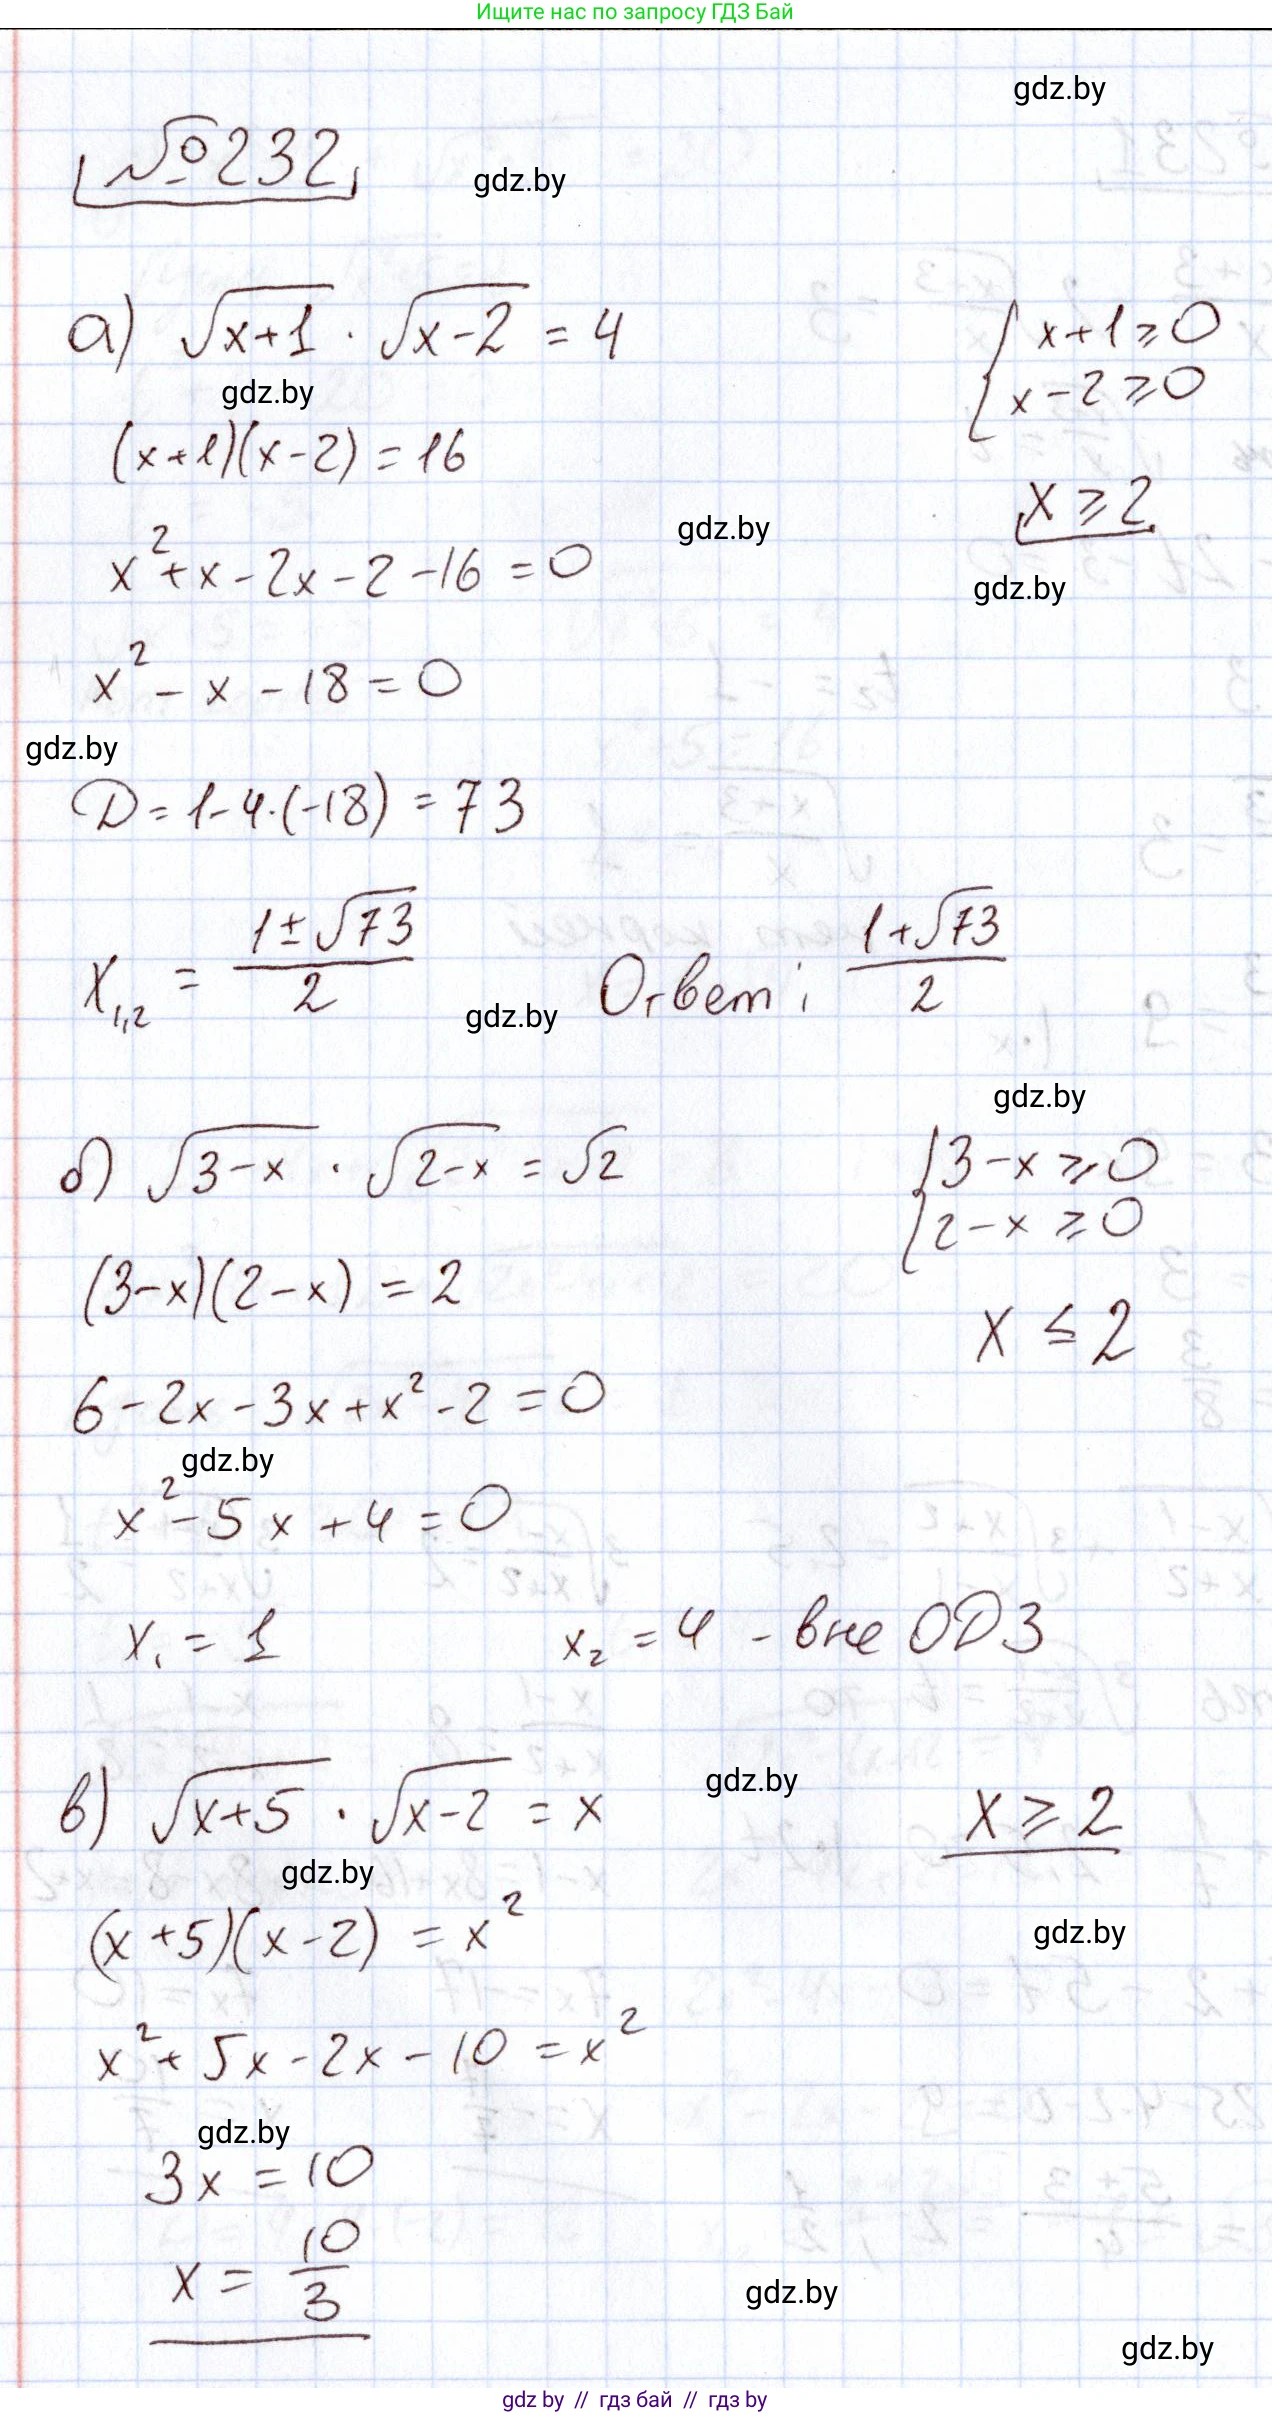 Ищите нас по запросу ГДЗ Бай
gdz.by
№232
gdz.by
а) √(x+1) · √(x-2) = 4
{ x+1 ≥ 0
x-2 ≥ 0
gdz.by
(x+1)(x-2) = 16
x ≥ 2
gdz.by
x² + x - 2x - 2 - 16 = 0
gdz.by
x² - x - 18 = 0
gdz.by
D = 1-4·(-18) = 73
x₁,₂ = (1±√73)/2
Ответ: (1+√73)/2
gdz.by
gdz.by
б) √(3-x) · √(2-x) = √2
{ 3-x ≥ 0
2-x ≥ 0
(3-x)(2-x) = 2
x ≤ 2
6-2x-3x+x²-2=0
gdz.by
x²-5x+4=0
x₁ = 1
x₂ = 4 - вне ОДЗ
gdz.by
в) √(x+5) · √(x-2) = x
x ≥ 2
gdz.by
(x+5)(x-2) = x²
gdz.by
x² + 5x - 2x - 10 = x²
gdz.by
3x = 10
x = 10/3
gdz.by
gdz.by
gdz by // гдз бай // гдз by